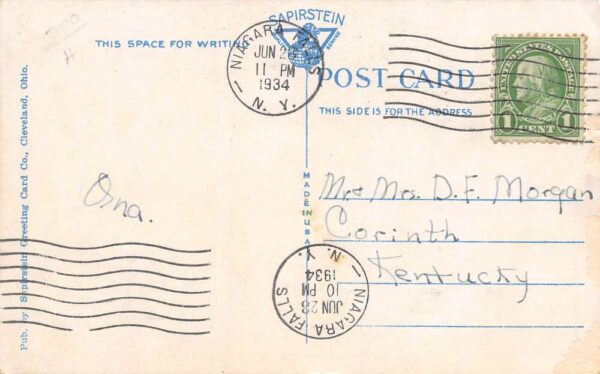 SAPIRSTEIN
THIS SPACE FOR WRITING
NIAGARA FALLS
JUN 28
11 PM
1934
N. Y.
POST CARD
THIS SIDE IS FOR THE ADDRESS
UNITED STATES POSTAGE
1 CENT 1
MADE IN U.S.A.
Ona.
Mr & Mrs. D. F. Morgan
Corinth
Kentucky
NIAGARA FALLS
JUN 28
10 PM
1934
N. Y.
Pub. by Sapirstein Greeting Card Co., Cleveland, Ohio.